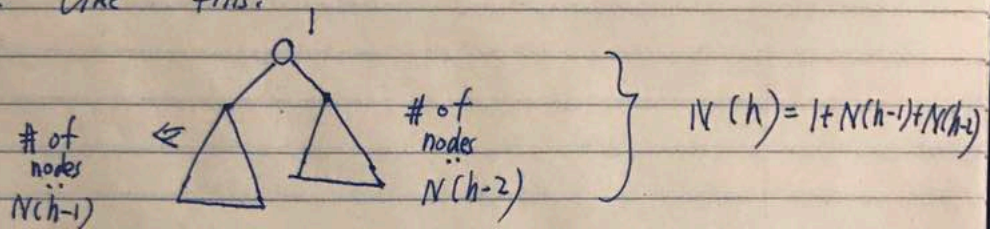 like this:
1
# of
nodes
N(h-1)
# of
nodes
N(h-2)
N(h)=1+N(h-1)+N(h-2)